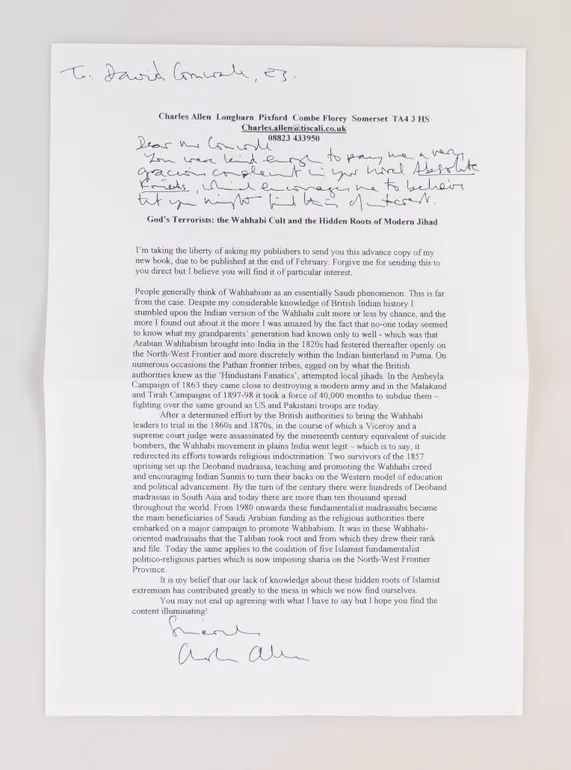 To: David Cornwell, Esq.
Charles Allen Longbarn Pixford Combe Florey Somerset TA4 3 HS
Charles.allen@tiscali.co.uk
08823 433950
Dear Mr Cornwell
You were kind enough to pay me a very
gracious compliment in your novel Absolute
Friends, which encourages me to believe
that you might find this of interest.
God's Terrorists: the Wahhabi Cult and the Hidden Roots of Modern Jihad
I'm taking the liberty of asking my publishers to send you this advance copy of my
new book, due to be published at the end of February. Forgive me for sending this to
you direct but I believe you will find it of particular interest.
People generally think of Wahhabism as an essentially Saudi phenomenon. This is far
from the case. Despite my considerable knowledge of British Indian history I
stumbled upon the Indian version of the Wahhabi cult more or less by chance, and the
more I found out about it the more I was amazed by the fact that no-one today seemed
to know what my grandparents' generation had known only to well - which was that
Arabian Wahhabism brought into India in the 1820s had festered thereafter openly on
the North-West Frontier and more discretely within the Indian hinterland in Patna. On
numerous occasions the Pathan frontier tribes, egged on by what the British
authorities knew as the 'Hindustani Fanatics', attempted local jihads. In the Ambeyla
Campaign of 1863 they came close to destroying a modern army and in the Malakand
and Tirah Campaigns of 1897-98 it took a force of 40,000 months to subdue them –
fighting over the same ground as US and Pakistani troops are today.
After a determined effort by the British authorities to bring the Wahhabi
leaders to trial in the 1860s and 1870s, in the course of which a Viceroy and a
supreme court judge were assassinated by the nineteenth century equivalent of suicide
bombers, the Wahhabi movement in plains India went legit – which is to say, it
redirected its efforts towards religious indoctrination. Two survivors of the 1857
uprising set up the Deoband madrassa, teaching and promoting the Wahhabi creed
and encouraging Indian Sunnis to turn their backs on the Western model of education
and political advancement. By the turn of the century there were hundreds of Deoband
madrassas in South Asia and today there are more than ten thousand spread
throughout the world. From 1980 onwards these fundamentalist madrassahs became
the main beneficiaries of Saudi Arabian funding as the religious authorities there
embarked on a major campaign to promote Wahhabism. It was in these Wahhabi-
oriented madrassahs that the Taliban took root and from which they drew their rank
and file. Today the same applies to the coalition of five Islamist fundamentalist
politico-religious parties which is now imposing sharia on the North-West Frontier
Province.
It is my belief that our lack of knowledge about these hidden roots of Islamist
extremism has contributed greatly to the mess in which we now find ourselves.
You may not end up agreeing with what I have to say but I hope you find the
content illuminating!
Sincerely
Charles Allen